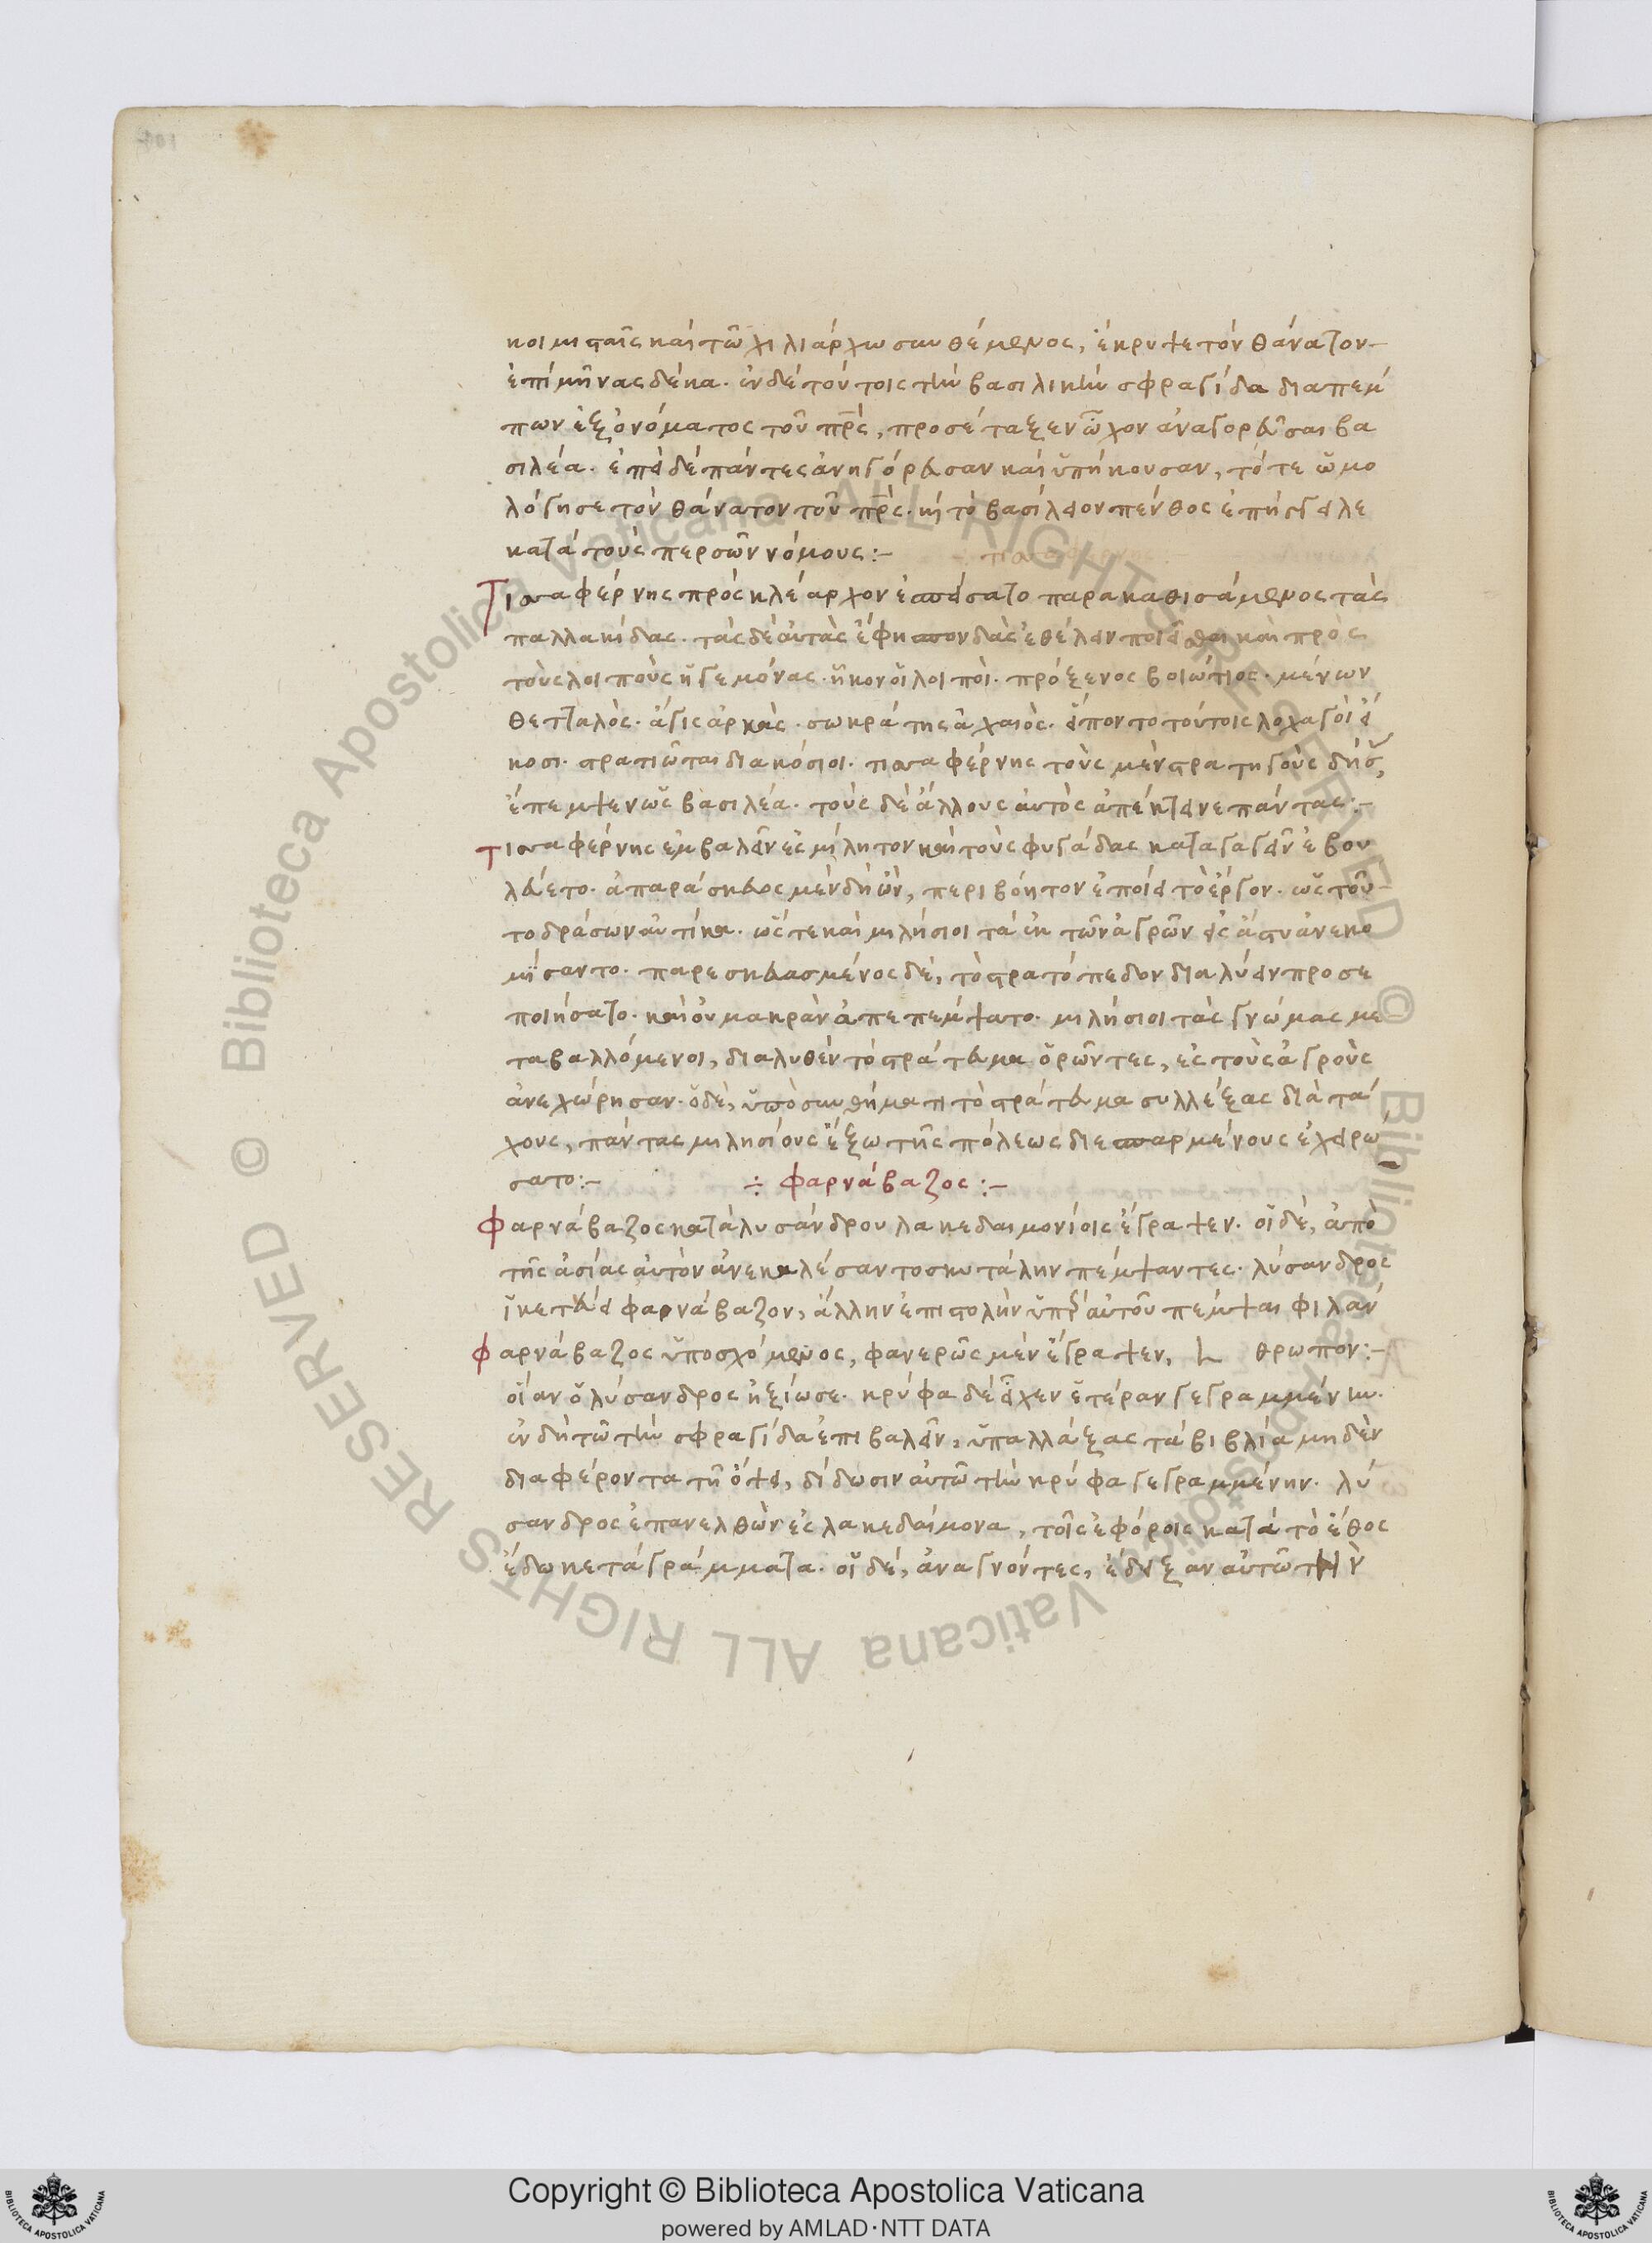 κοιμισταῖς καὶ τῶ χιλιάρχω συνθέμενος, ἔκρυψε τὸν θάνατον
ἐπὶ μῆνας δέκα. ἐν δὲ τούτοις τὴν βασιλικὴν σφραγίδα διαπέμ
πων ἐξ ὀνόματος τοῦ πρς, προσέταξεν ὦχον ἀναγορεῦσαι βα
σιλέα. ἐπεὶ δὲ πάντες ἀνηγόρευσαν καὶ ὑπήκουσαν, τότε ὡμο
λόγησε τὸν θάνατον τοῦ πρς. κὶ τὸ βασίλειον πένθος ἐπήγγειλε
κατὰ τοὺς περσῶν νόμους:–
Τισαφέρνης πρὸς κλέαρχον ἐσπείσατο παρακαθισάμενος τὰς
παλλακίδας. τὰς δὲ αὐτὰς ἔφη σπονδὰς ἐθέλειν ποιεῖσθαι καὶ πρὸς
τοὺς λοιποὺς ἡγεμόνας. ἧκον οἱ λοιποὶ. πρόξενος βοιώτιος. μένων
θετταλὸς. ἄγις ἀρκὰς. σωκράτης ἀχαιὸς. εἵποντο τούτοις λοχαγοὶ εἴ
κοσι. στρατιῶται διακόσιοι. τισαφέρνης τοὺς μὲν στρατηγοὺς δήσ,
ἔπεμψεν ὡς βασιλέα. τοὺς δὲ ἄλλους αὐτὸς ἀπέκτεινε πάντας:–
Τισαφέρνης ἐμβαλεῖν ἐς μίλητον καὶ τοὺς φυγάδας καταγαγεῖν ἐβου
λεύετο. ἀπαράσκευος μὲν δὴ ὢν, περιβόητον ἐποίει τὸ ἔργον. ὡς τοῦ
το δράσων αὐτίκα. ὥς τε καὶ μιλήσιοι τὰ ἐκ τῶν ἀγρῶν εἰς ἄστυ ἀνεκο
μίσαντο. παρεσκευασμένος δὲ, τὸ στρατόπεδον διαλύειν προσε
ποιήσατο. καὶ οὐ μακρὰν ἀπεπέμψατο. μιλήσιοι τὰς γνώμας με
ταβαλλόμενοι, διαλυθὲν τὸ στράτευμα ὁρῶντες, ἐς τοὺς ἀγροὺς
ἀνεχώρησαν. ὁ δὲ, ὑπὸ συνθήματι τὸ στράτευμα συλλέξας διὰ τά
χους, πάντας μιλησίους ἔξω τῆς πόλεως διεσπαρμένους ἐχειρώ
σατο:– ÷ φαρνάβαζος:–
Φαρνάβαζος κατὰ λυσάνδρου λακεδαιμονίοις ἔγραψεν. οἱ δὲ, ἀπὸ
τῆς ἀσίας αὐτὸν ἀνεκαλέσαντο σκυτάλην πέμψαντες. λύσανδρος
ἱκετεύει φαρνάβαζον, ἄλλην ἐπιστολὴν ὑπὲρ αὐτοῦ πέμψαι φιλάν
Φαρνάβαζος ὑποσχόμενος, φανερῶς μὲν ἔγραψεν, θρωπον:–
οἵαν ὁ λύσανδρος ἠξίωσε. κρύφα δὲ εἶχεν ἑτέραν γεγραμμένην.
ἐν δὴ τῶ τὴν σφραγίδα ἐπιβαλεῖν, ὑπαλλάξας τὰ βιβλία μηδὲν
διαφέροντα τῆ ὄψει, δίδωσιν αὐτῶ τὴν κρύφα γεγραμμένην. λύ
σανδρος ἐπανελθὼν ἐς λακεδαίμονα, τοῖς ἐφόροις κατὰ τὸ ἔθος
ἔδωκε τὰ γράμματα. οἱ δὲ, ἀναγνόντες, ἔδειξαν αὐτῶ τὴν
Copyright © Biblioteca Apostolica Vaticana
powered by AMLAD·NTT DATA